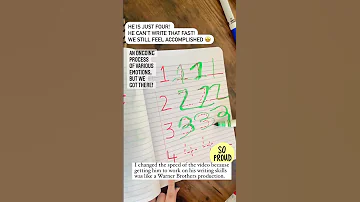 HE IS JUST FOUR!
HE CAN'T WRITE THAT FAST!
WE STILL FEEL ACCOMPLISHED 🤓
AN ONGOING
PROCESS
OF VARIOUS
EMOTIONS,
BUT WE
GOT THERE!
1 1 1 1
2 2 2 2
3 3 3
4
SO
PROUD
I changed the speed of the video because
getting him to work on his writing skills
was like a Warner Brothers production.